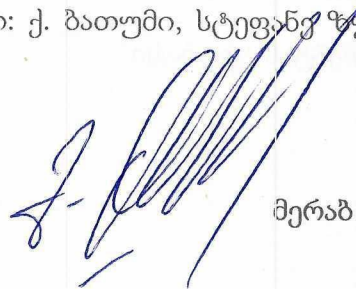 : ქ. ბათუმი, სტეფანე
მერაბ